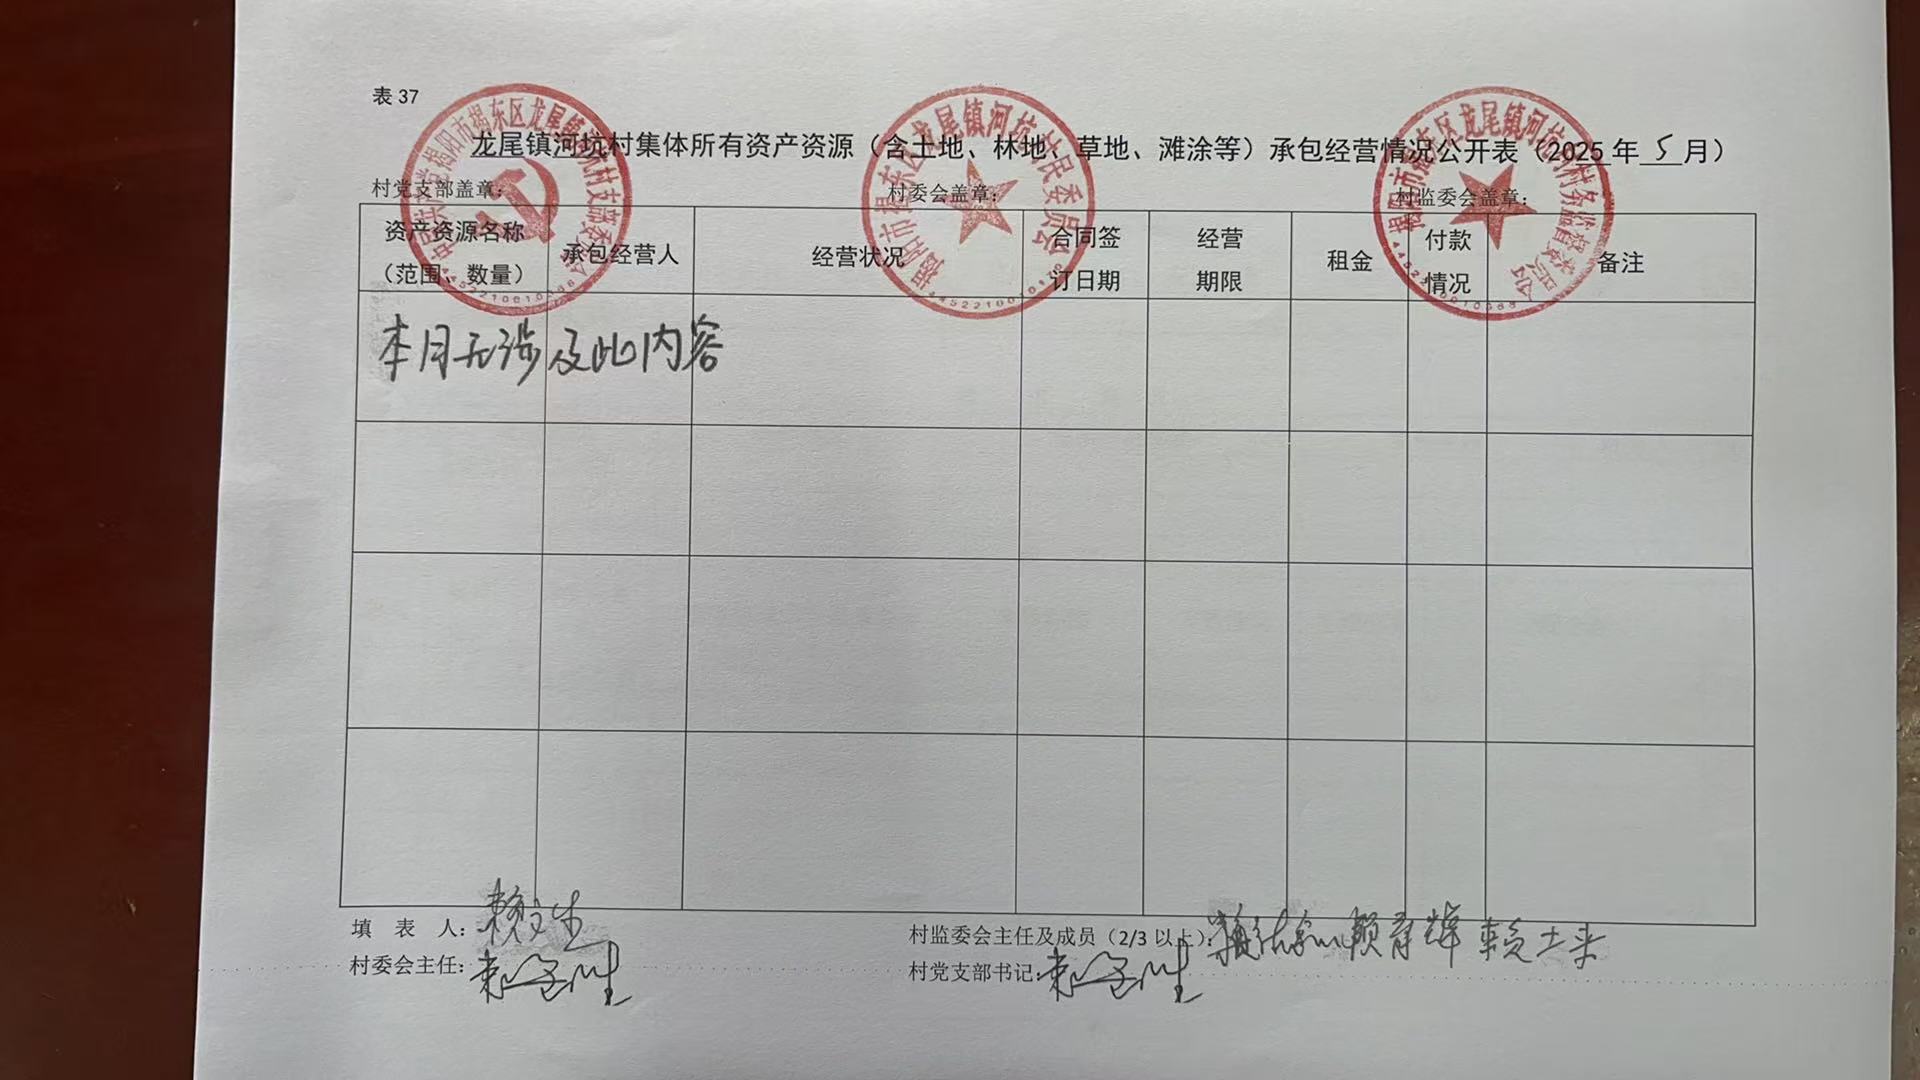 表 37
龙尾镇河坑村集体所有资产资源（含土地、林地、草地、滩涂等）承包经营情况公开表（2025 年 5 月）
村党支部盖章： 村委会盖章： 村监委会盖章：
资产资源名称（范围、数量） 承包经营人 经营状况 合同签订日期 经营期限 租金 付款情况 备注
本月无涉及此内容
填 表 人：赖文生 村监委会主任及成员（2/3 以上）： 赖育辉 赖士来
村委会主任： 村党支部书记：
揭阳市揭东区龙尾镇河坑村民委员会